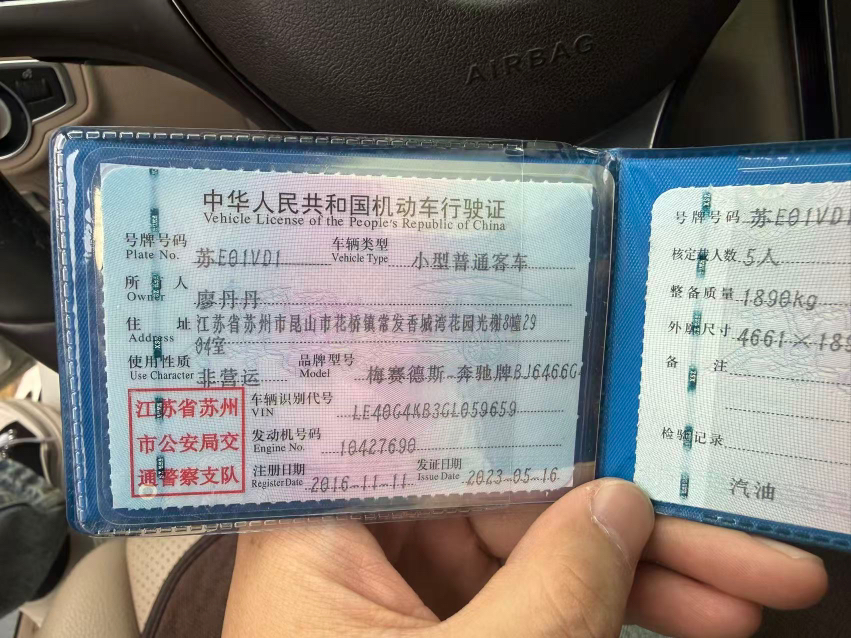 AIRBAG
中华人民共和国机动车行驶证
Vehicle License of the People's Republic of China
号牌号码 苏E01VD1 车辆类型 小型普通客车
Plate No. Vehicle Type
所 人 廖丹丹
Owner
住 址 江苏省苏州市昆山市花桥镇常发香城湾花园光榭8幢29
Address 04室
使用性质 非营运 品牌型号 梅赛德斯-奔驰牌BJ6466G
Use Character Model
江苏省苏州
市公安局交
通警察支队
车辆识别代号 LE40G4KB3GL059659
VIN
发动机号码 10427690
Engine No.
注册日期 2016-11-11 发证日期 2023-05-16
Register Date Issue Date
号牌号码 苏E01VD1
核定载人数 5人
整备质量 1890kg
外廓尺寸 4661×189
备 注
检验记录
汽油